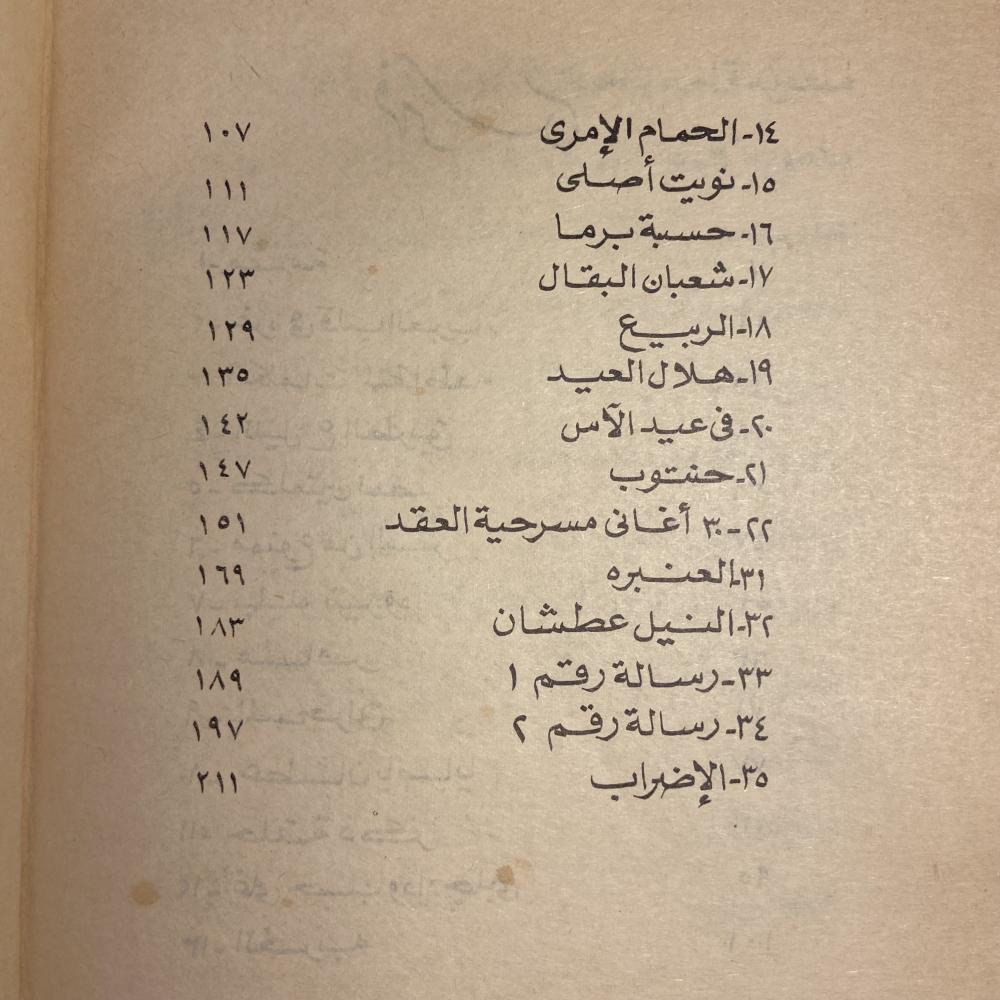 ١٤- الحمام الإمرى ١٠٧
١٥- نويت أصلى ١١١
١٦- حسبة برما ١١٧
١٧- شعبان البقال ١٢٣
١٨- الربيع ١٢٩
١٩- هلال العيد ١٣٥
٢٠- فى عيد الآس ١٤٢
٢١- حنتوب ١٤٧
٢٢-٣٠ أغانى مسرحية العقد ١٥١
٣١- العنبره ١٦٩
٣٢- النيل عطشان ١٨٣
٣٣- رسالة رقم ١ ١٨٩
٣٤- رسالة رقم ٢ ١٩٧
٣٥- الإضراب ٢١١